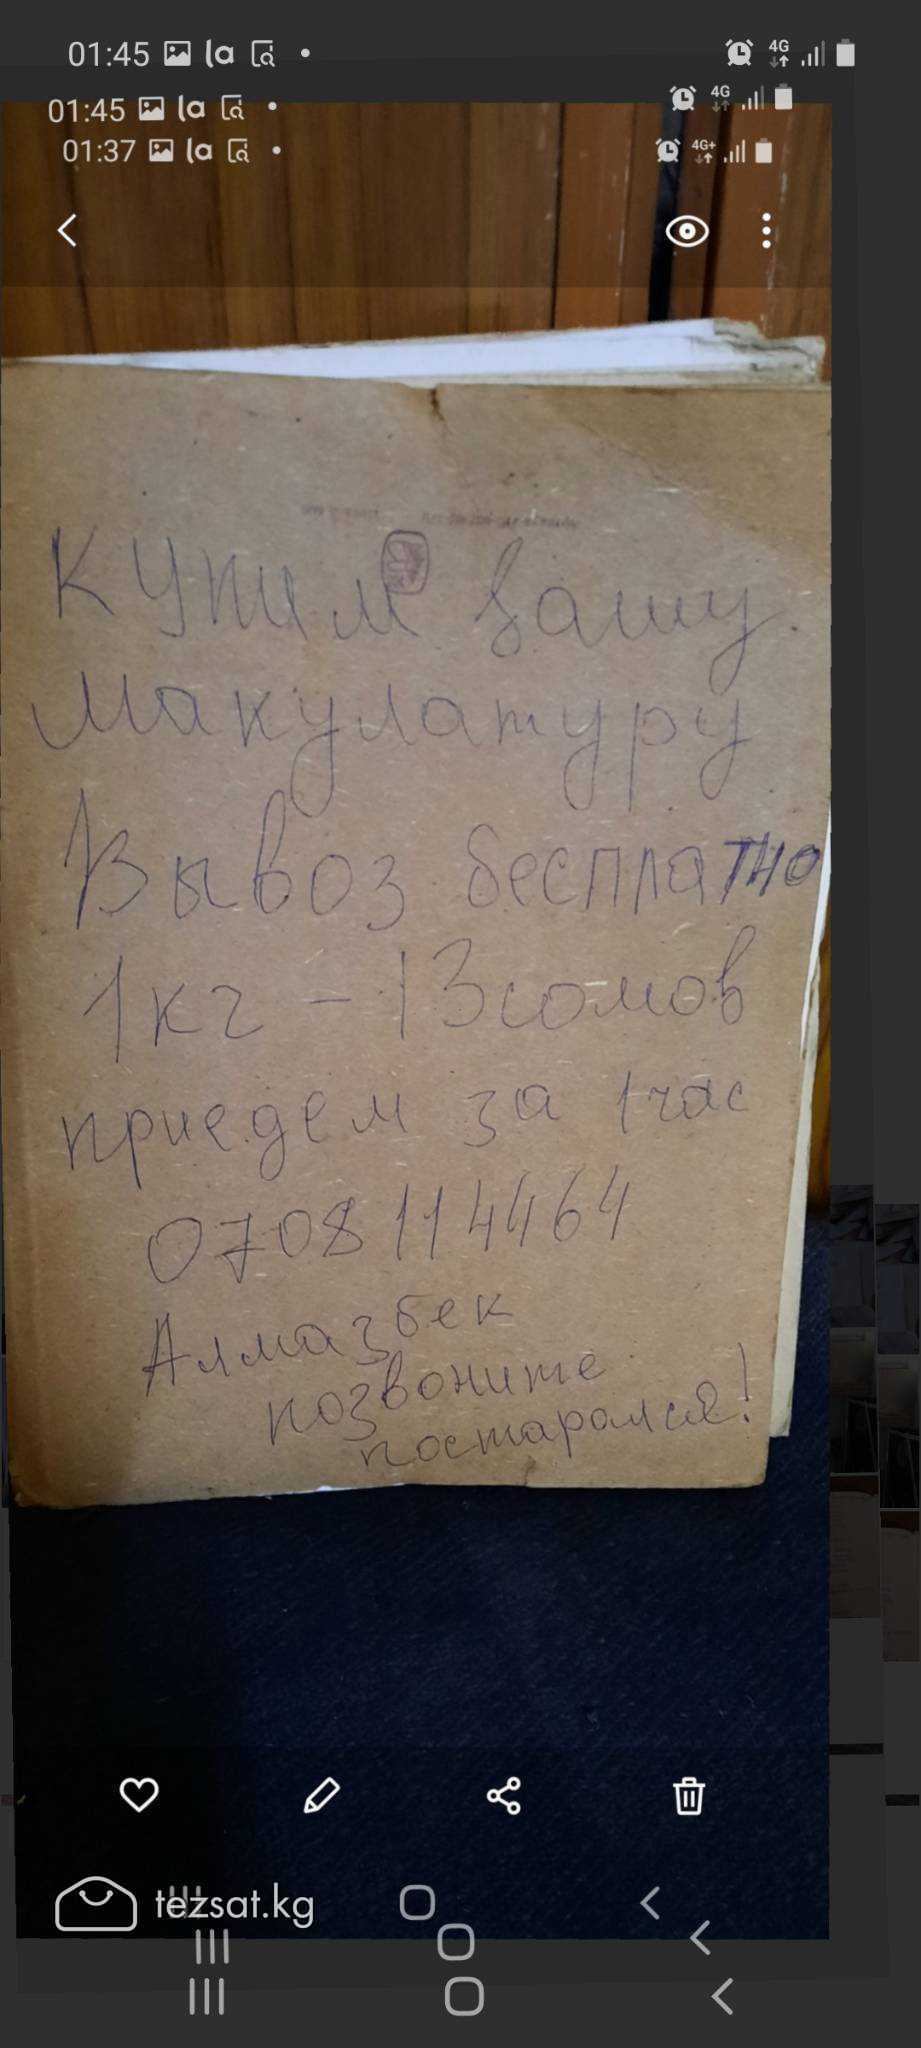 01:45 la 4G
01:45 la 4G
01:37 la 4G+
Купим вашу
макулатуру
Вывоз бесплатно
1кг - 13 сомов
приедем за 1 час
0708 114464
Алмазбек
позвоните
постараемся!
tezsat.kg